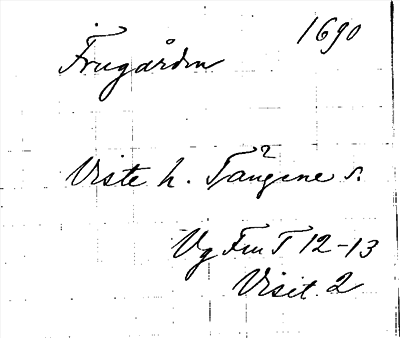 1690
Frugården
Viste h. Tängene s.
Vg Fru T 12-13
Visit. 2